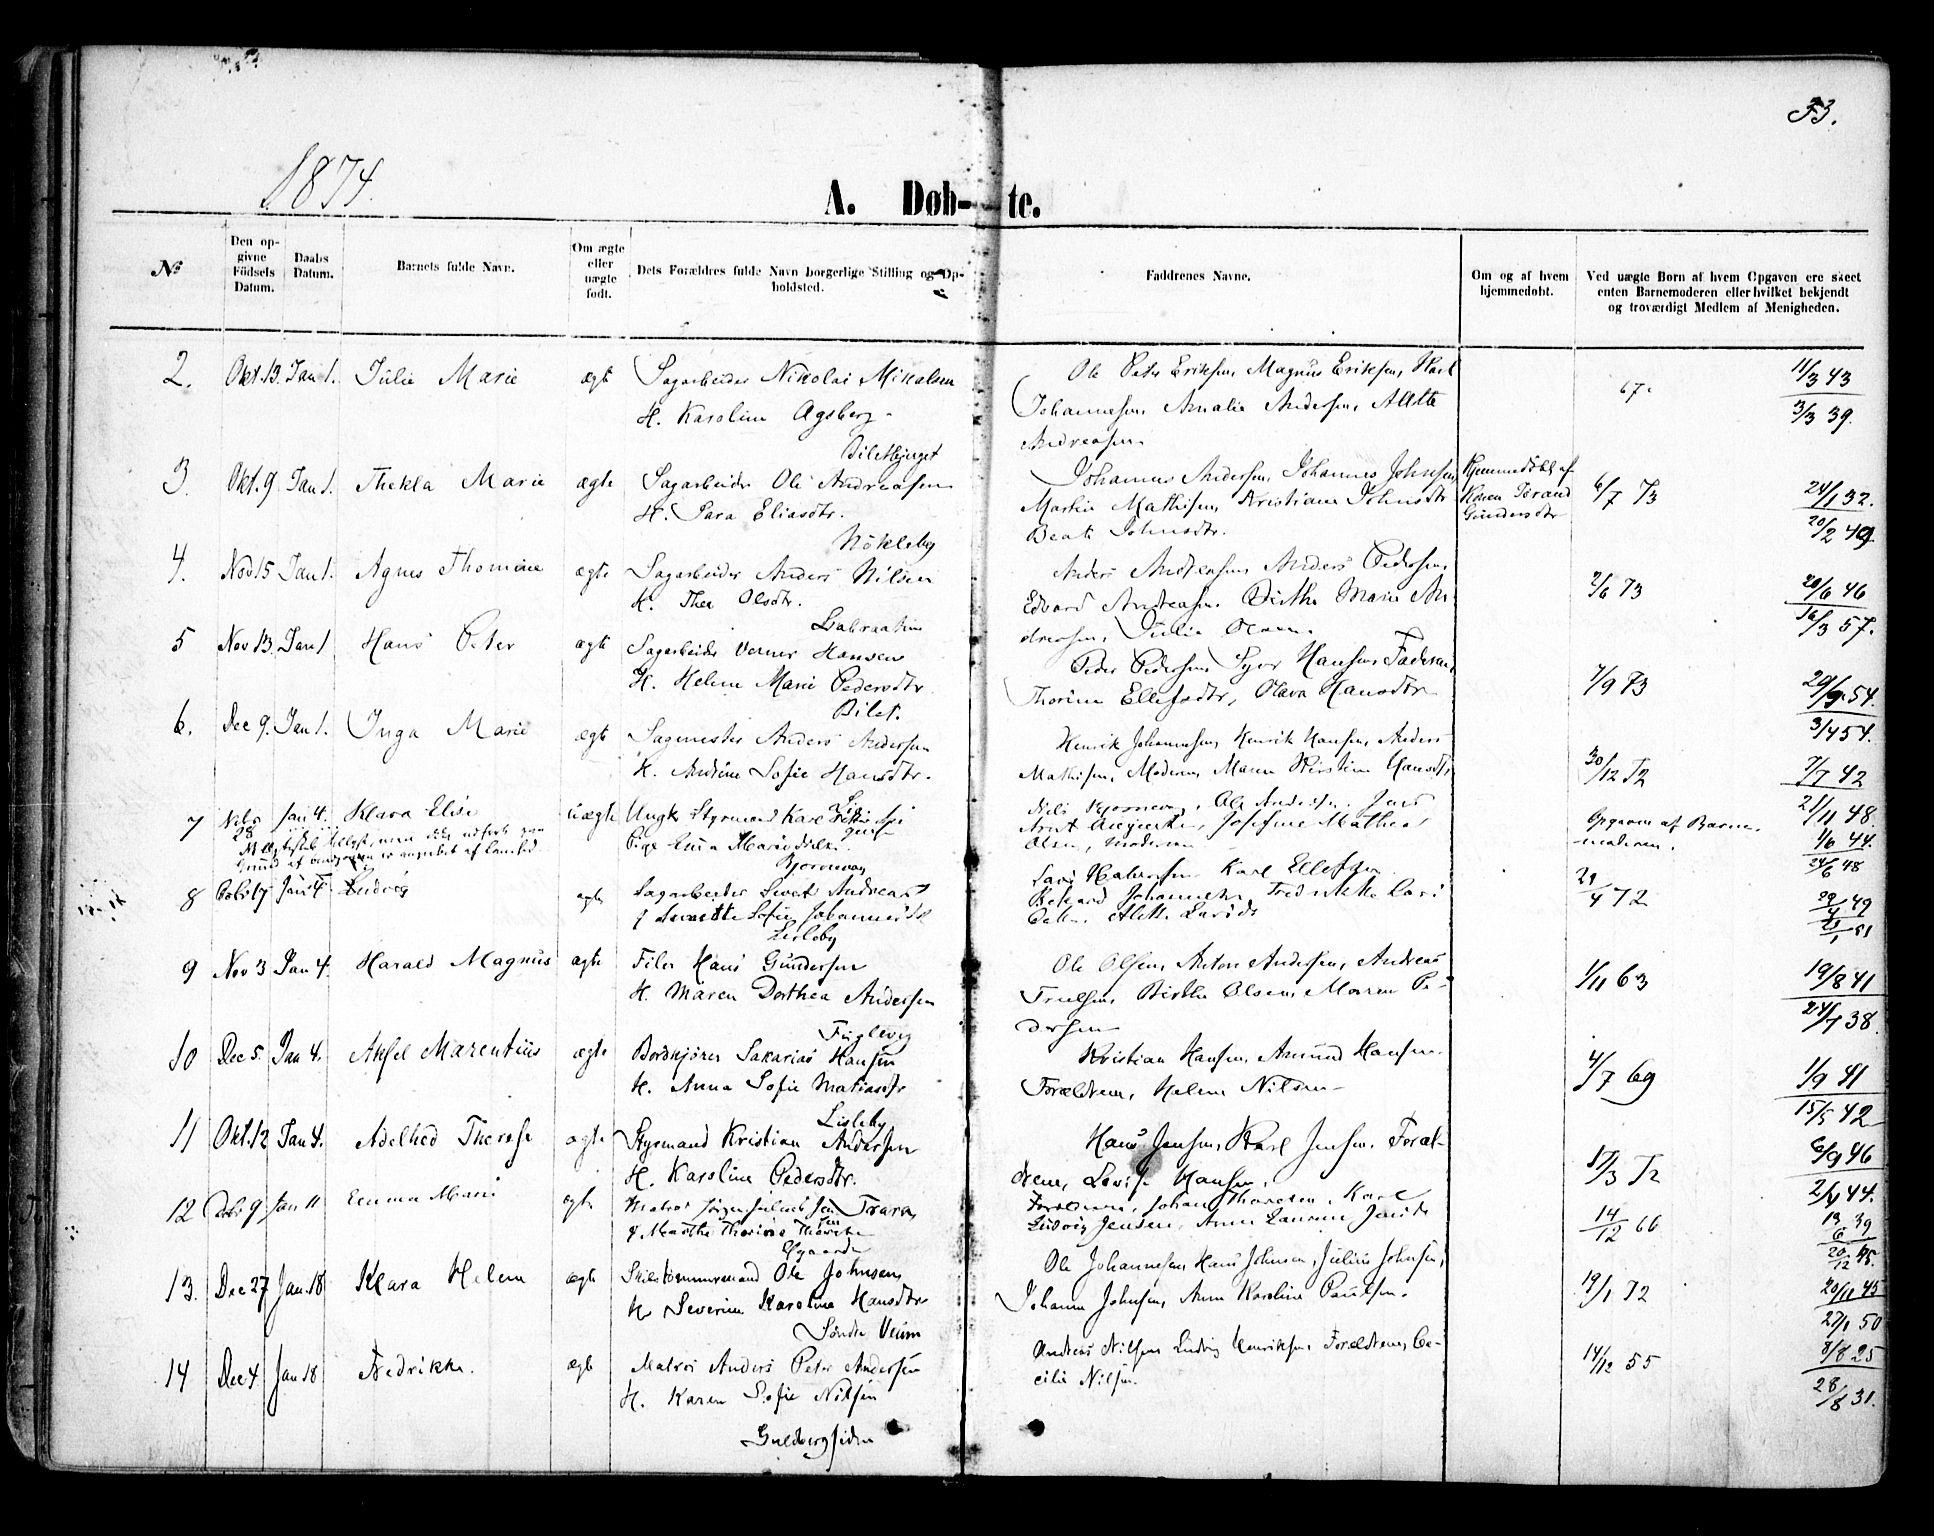 33.
1874.
A. Døb- te.
№
Den opgivne Födsels Datum.
Daabs Datum.
Barnets fulde Navn.
Om ægte eller uægte født.
Dets Forældres fulde Navn borgerlige Stilling og Opholdsted.
Faddrenes Navne.
Om og af hvem hjemmedøbt.
Ved uægte Born af hvem Opgaven ere skeet enten Barnemoderen eller hvilket bekjendt og troværdigt Medlem af Menigheden.
2. Okt. 13. Jan 1. Julie Marie ægte Sagarbeider Nikolai Mikalsen Ole Peter Eriksen, Magnus Eriksen, Karl 67. 11/3 43
H. Karoline Agsberg Johannesen, Amalie Andersen, Alette 3/3 39.
Andreasen
3. Okt. 9 Jan 1. Thekla Marie ægte Sagarbeider Ole Andreasen Johannes Andersen, Johannes Johnsen, Hjemmedöbt af 6/7 73 24/1 32.
H. Sara Eliasdtr. Martin Mathisen, Kristiane Johnsdtr Konen Torand 20/2 49
Nökleby Beate Johnsdtr. Gundersdtr
4. Nov 15 Jan 1. Agnes Thomine ægte Sagarbeider Anders Nilsen Anders Andersen, Anders Pedersen, 2/6 73 20/6 46
H. Thea Olsdtr. Edvard Andreasen, Birthe Marie An- 16/3 57.
Labraaten dreasen, Julie Olsen
5 Nov 13. Jan 1 Hans Peter ægte Sagarbeider Verner Hansen Peder Pedersen, Syver Hansen, Faderen, 7/9 73 54.
H. Helene Marie Pedersdtr. Thorine Ellefsdtr, Olava Hansdtr 3/4 54.
Bilet.
6. Dec 9. Jan 1. Inga Marie ægte Sagmester Anders Andersen Henrik Johannesen, Henrik Hansen, Anders 30/12 72 7/7 42
H. Andrine Sofie Hansdtr. Mathisen, Moderen, Maren Kirstine Hansdtr 21/11 48.
7 28 Jan 4. Klara Elise uægte Ungk. Styrmand Karl Ole Andersen, Jens Opgaven af Barne- 1/6 44.
Pige Josefine Mathea moderen. 24/6 48
Olsen, Moderen
8 Jan 4 Ludvig ægte Sagarbeider Andreas Karl Ellefsen 72 49
Sofie Johannesd Johannesen, Fredrikke
Lisleby
9 Nov 3 Jan 4. Harald Magnus ægte Filer Hans Gundersen Ole Olsen, Anton Andersen, Andreas 1/11 63 19/8 41
H. Maren Dorthea Andersen Truelsen, Birthe Olsen, Maren Pe- 24/7 38.
Fuglevig dersen
10 Dec 5. Jan 4. Aksel Marentius ægte Bordkjörer Sakarias Hansen Kristian Hansen, Amund Hansen 4/7 69 1/9 41
H. Anna Sofie Matiasdtr Forældrene, Helene Nilsen 15/5 42
Lisleby
11 Okt. 12 Jan 4. Adelhed Therese ægte Styrmand Kristian Andersen Hans Jensen, Karl Jensen, Foræl- 17/3 72 6/9 46
H. Karoline Pedersdtr. drene, Lovise Hansen. 2/4 44.
12 9 Jan 11 Emma Marie ægte Matros Jörgen Forældrene, Johan Thoresen, Karl 14/12 66 13/6 39
Marthe Ludvig Jensen, Anne 20/12 45.
13. Dec 27 Jan. 18 Klara Helene ægte Skibstömmermand Ole Johnsen, Ole Johannesen, Hans Johnsen, Julius Johnsen, 19/1 72 20/11 45
H. Severine Karoline Hansdtr Johanne Johnsen, Anne Karoline Paulsen. 27/1 50
Söndre Veum
14 Dec 4 Jan 18 Fredrikke. ægte Matros Anders Peter Andersen Andreas Nilsen, Ludvig Henriksen, Forældrene, Ce- 14/12 55 8/8 25
H. Karen Sofie Nilsen cilie Nilsen. 28/8 31.
Guldbergsiden